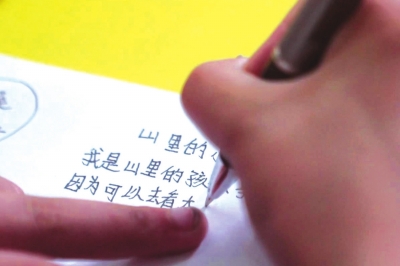 山里的
我是山里的孩
因为可以去看大